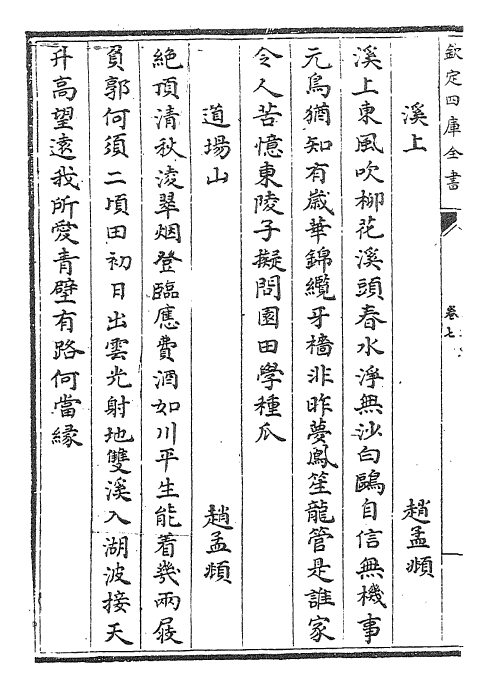 欽定四庫全書
卷七
溪上　　　趙孟頫
溪上東風吹柳花溪頭春水淨無沙白鷗自信無機事
元鳥猶知有歲華錦纜牙檣非昨夢鳳笙龍管是誰家
令人苦憶東陵子擬問園田學種瓜
道場山　　　趙孟頫
絶頂清秋凌翠烟登臨應費酒如川平生能着幾兩屐
負郭何須二頃田初日出雲光射地雙溪入湖波接天
升高望遠我所愛青壁有路何當縁